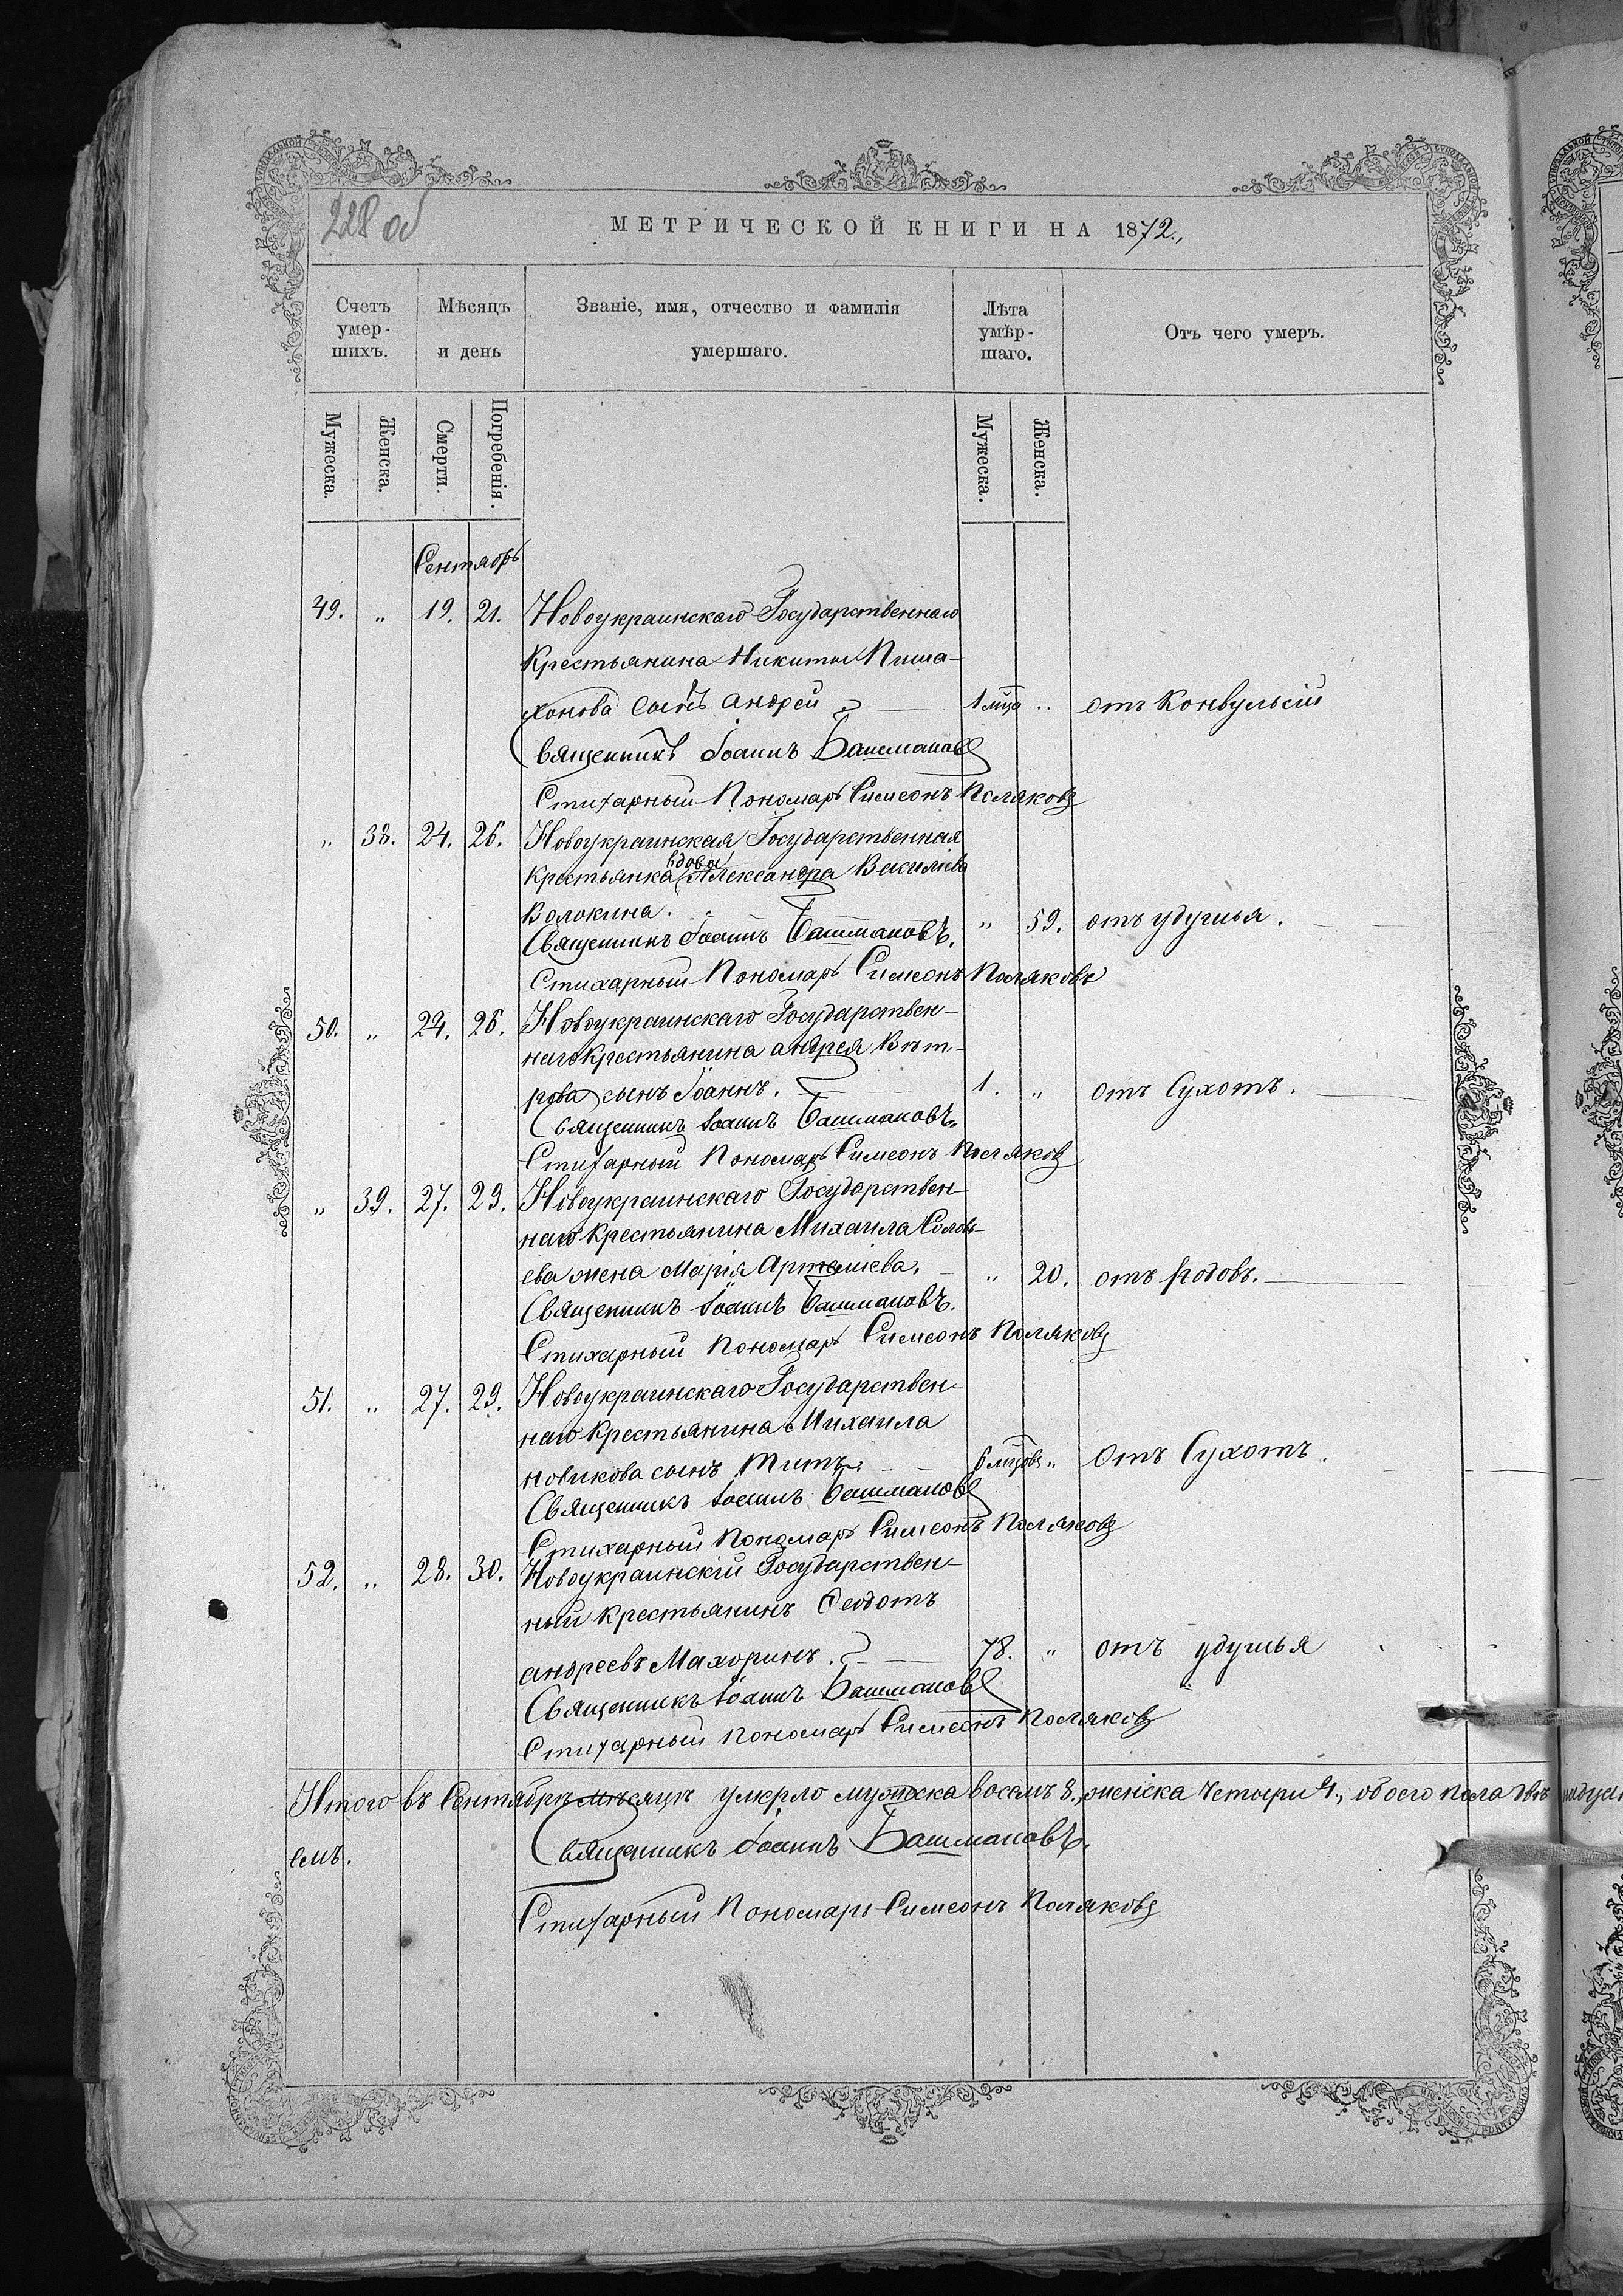 228 об
МЕТРИЧЕСКОЙ КНИГИ НА 1872.,
Счетъ умер-шихъ.
Мѣсяцъ и день
Званіе, имя, отчество и фамилія умершаго.
Лѣта умѣр-шаго.
Отъ чего умеръ.
Мужеска. Женска. Смерти. Погребенія. Мужеска. Женска.
Сентябрь
49. „ 19. 21. Новоукраинскаго Государственнаго
Крестьянина Никиты Пиша-
хонова сынъ Андрей 1 мца „ отъ Конвульсій
Священникъ Іоаннъ Башмаковъ
Стихарный Пономарь Симеонъ Поляковъ
„ 38. 24. 26. Новоукраинская Государственная
Крестьянка вдова Александра Василіева
Волокина. „ 59. отъ удушья.
Священникъ Іоаннъ Башмаковъ.
Стихарный Пономарь Симеонъ Поляковъ
50. „ 24. 26. Новоукраинскаго Государствен-
наго Крестьянина Андрея Вѣт-
рова сынъ Іоаннъ. 1. „ отъ Сухотъ.
Священникъ Іоаннъ Башмаковъ
Стихарный Пономарь Симеонъ Поляковъ
„ 39. 27. 29. Новоукраинскаго Государствен-
наго Крестьянина Михаила Солов-
ева жена Марія Артеміева. „ 20. отъ родовъ.
Священникъ Іоаннъ Башмаковъ.
Стихарный Пономарь Симеонъ Поляковъ
51. „ 27. 29. Новоукраинскаго Государствен-
наго Крестьянина Михаила
Новикова сынъ Титъ. 6 мцовъ „ Отъ Сухотъ.
Священникъ Іоаннъ Башмаковъ
Стихарный Пономарь Симеонъ Поляковъ
52. „ 28. 30. Новоукраинскій Государствен-
ный Крестьянинъ Ѳеодотъ
Андреевъ Махоринъ. 78. „ отъ удушья
Священникъ Іоаннъ Башмаковъ
Стихарный Пономарь Симеонъ Поляковъ
Итого въ Сентябрѣ мѣсяцѣ умерло мужеска восемь 8., женска четыри 4., обоего пола двѣ
емъ.
Священникъ Іоаннъ Башмаковъ.
Стихарный Пономарь Симеонъ Поляковъ